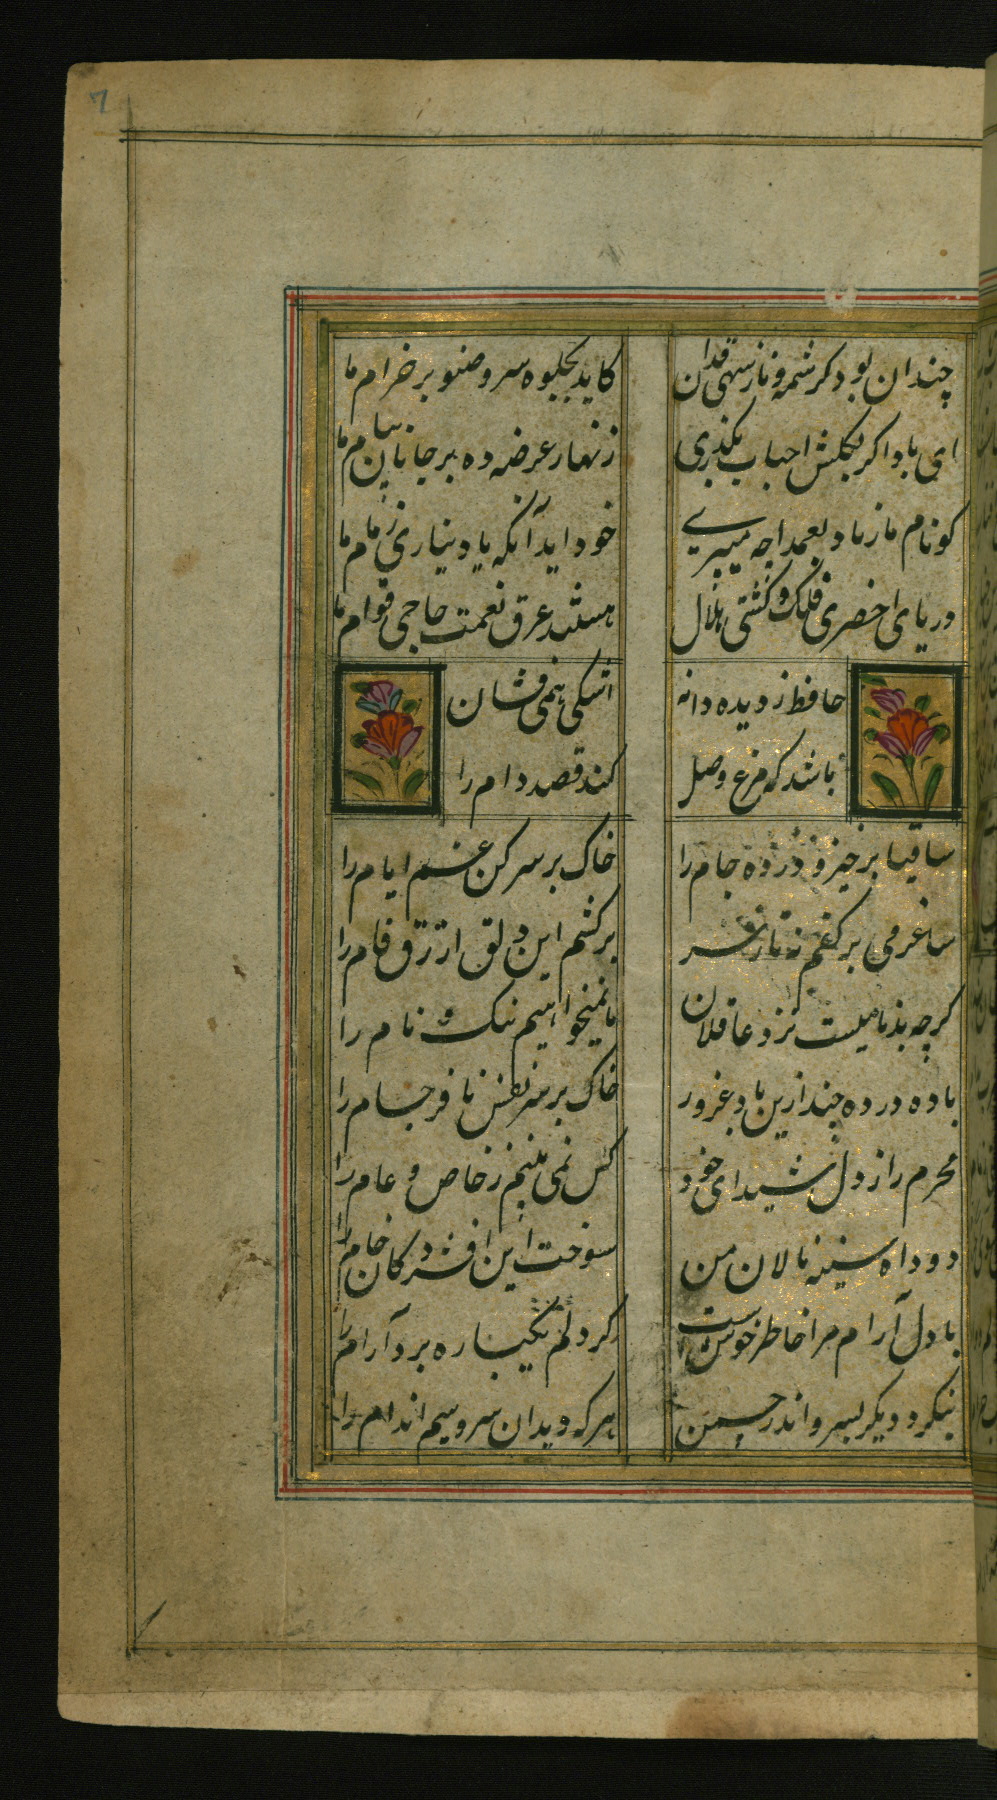 7
چندان بود کرشمه و ناز سهی قدان
کاید بجلوه سرو صنوبر خرام ما
ای باد اکر بکلشن احباب بکذری
زنهار عرضه ده بر جانان پیام ما
کو نام ما ز یاد بعمدا چه میبری
خود آید آنکه یاد نیاری ز نام ما
دریای اخضری فلک و کشتی هلال
هستند غرق نعمت حاجی قوام ما
حافظ ز دیده دانه
اشکی همی فشان
باشد که مرغ وصل
کند قصد دام را
ساقیا برخیز و در ده جام را
خاک بر سر کن غم ایام را
ساغر می بر کفم نه تا ز سر
برکشم این دلق ازرق فام را
کرچه بدنامیست نزد عاقلان
ما نمیخواهیم ننک و نام را
باده در ده چند ازین باد غرور
خاک بر سر نفس نافرجام را
محرم راز دل شیدای خود
کس نمی بینم ز خاص و عام را
دود آه سینه نالان من
سوخت این افسردکان خام را
با دل آرام مرا خاطر خوش است
کز دلم یکباره برد آرام را
ننکرد دیکر بسرو اندر چمن
هر که دید آن سرو سیم اندام را